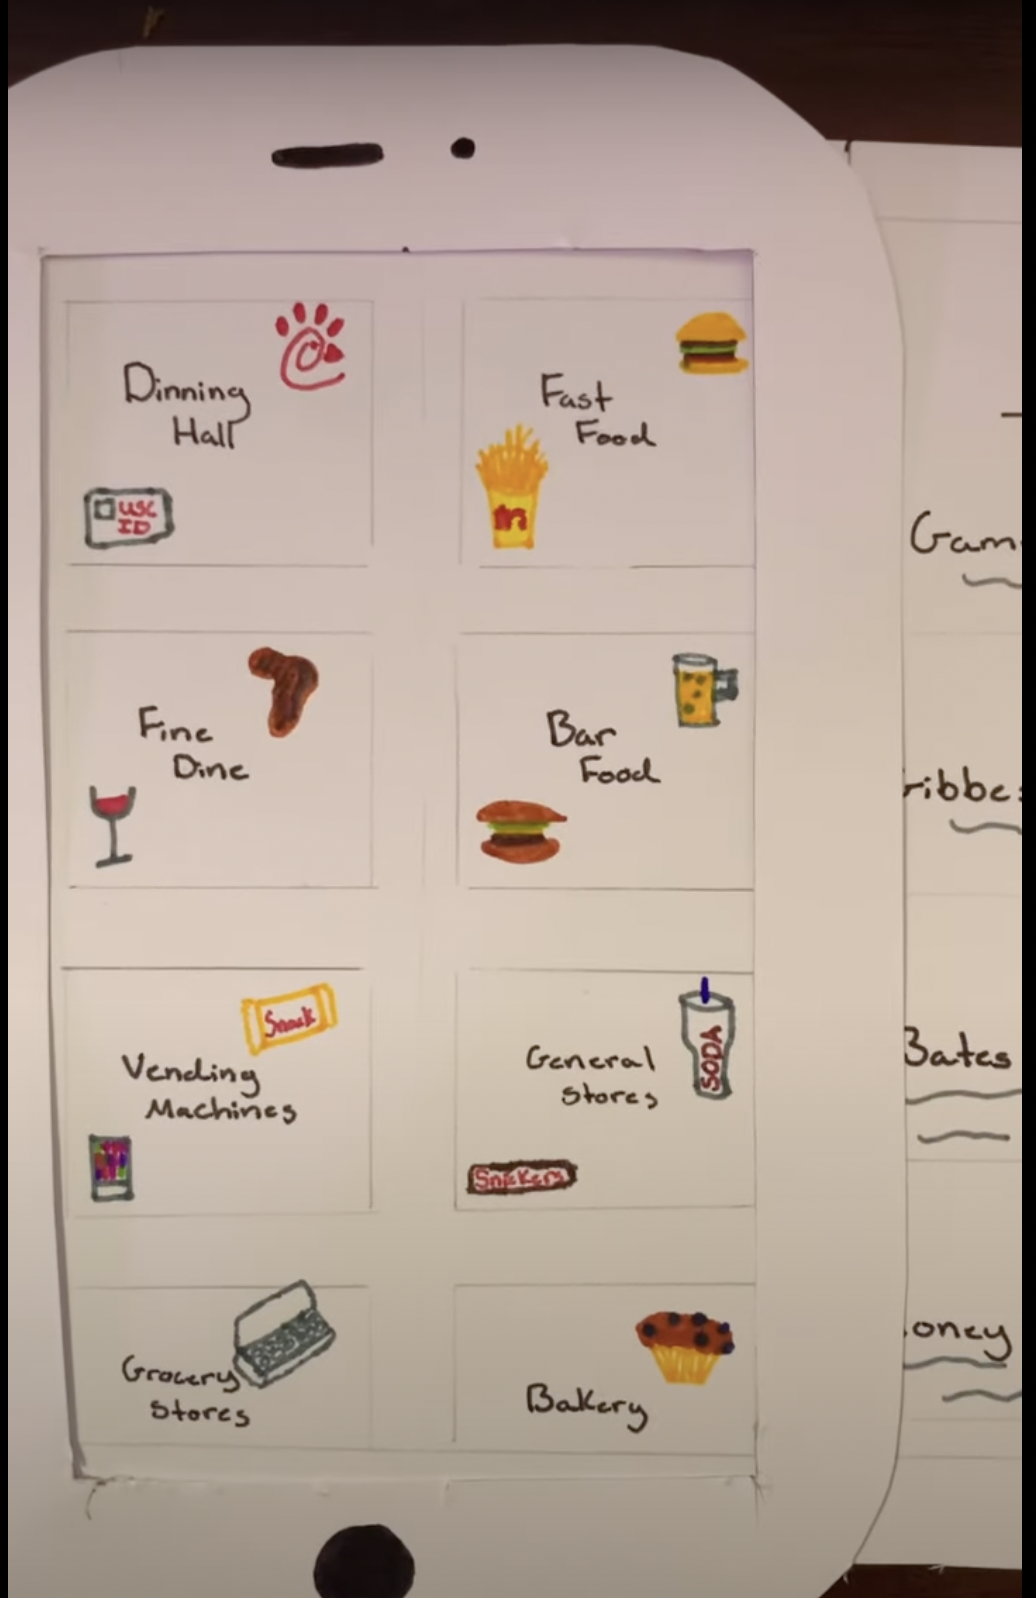 Dinning
Hall
USC
ID
Fast
Food
Fine
Dine
Bar
Food
Snack
Vending
Machines
General
Stores
SODA
Snickers
Grocery
Stores
Bakery
Gam
ibbes
Bates
oney